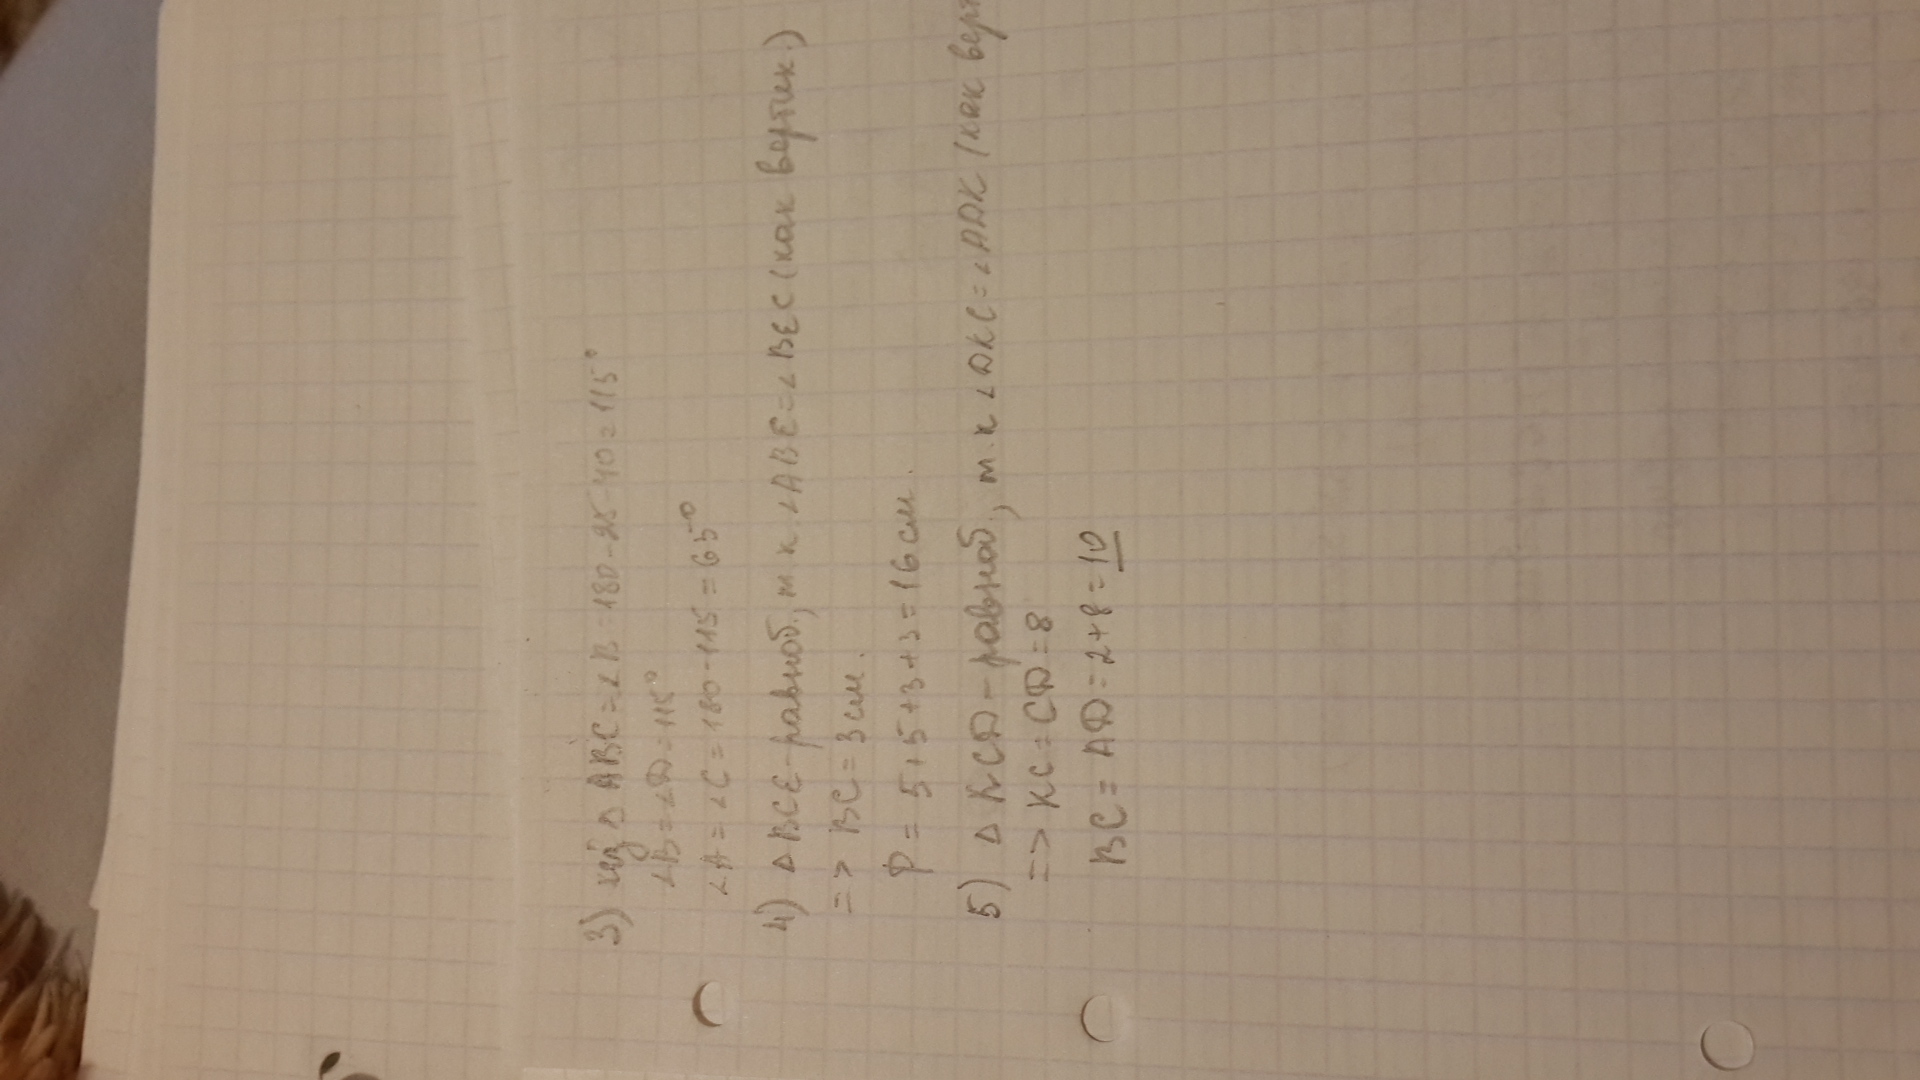 3) из △ ABC = ∠B = 180 - 25 - 40 = 115°
∠B = ∠D = 115°
∠A = ∠C = 180 - 115 = 65°
4) △ BCE - равноб., т.к. ∠ABE = ∠BEC (как вертик.)
=> BC = 3 см.
P = 5 + 5 + 3 + 3 = 16 см.
5) △ KCD - равноб., т.к ∠DKC = ∠ADK (как верт
=> KC = CD = 8
BC = AD = 2 + 8 = 10